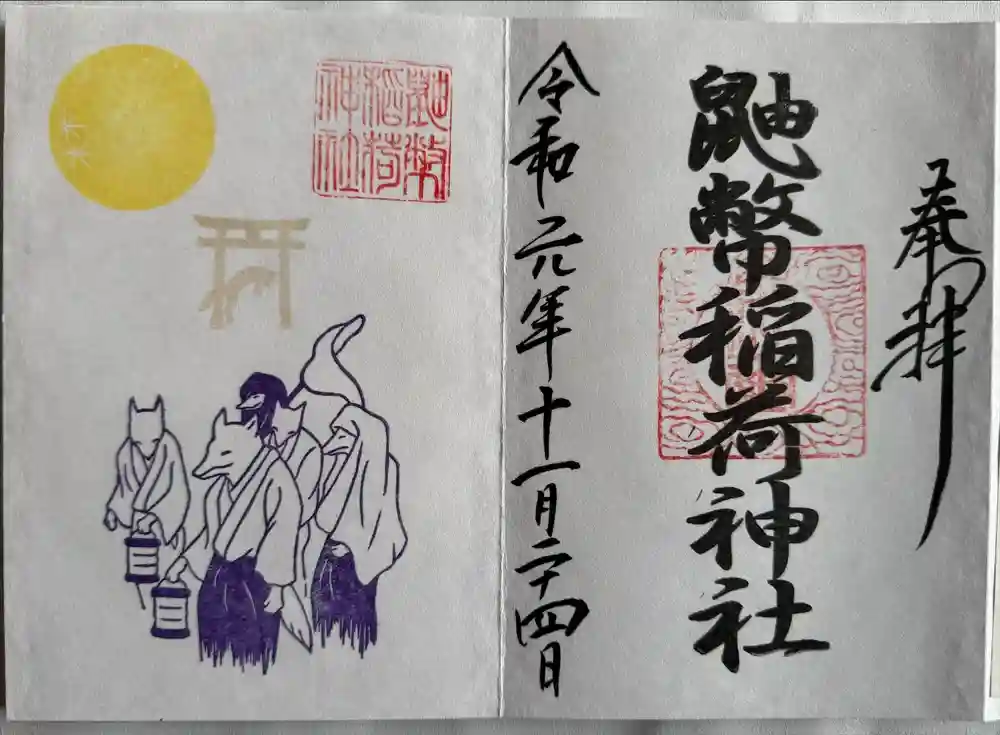 奉拝
鼬幣稲荷神社
令和元年十一月二十四日
鼬幣
稲荷
神社